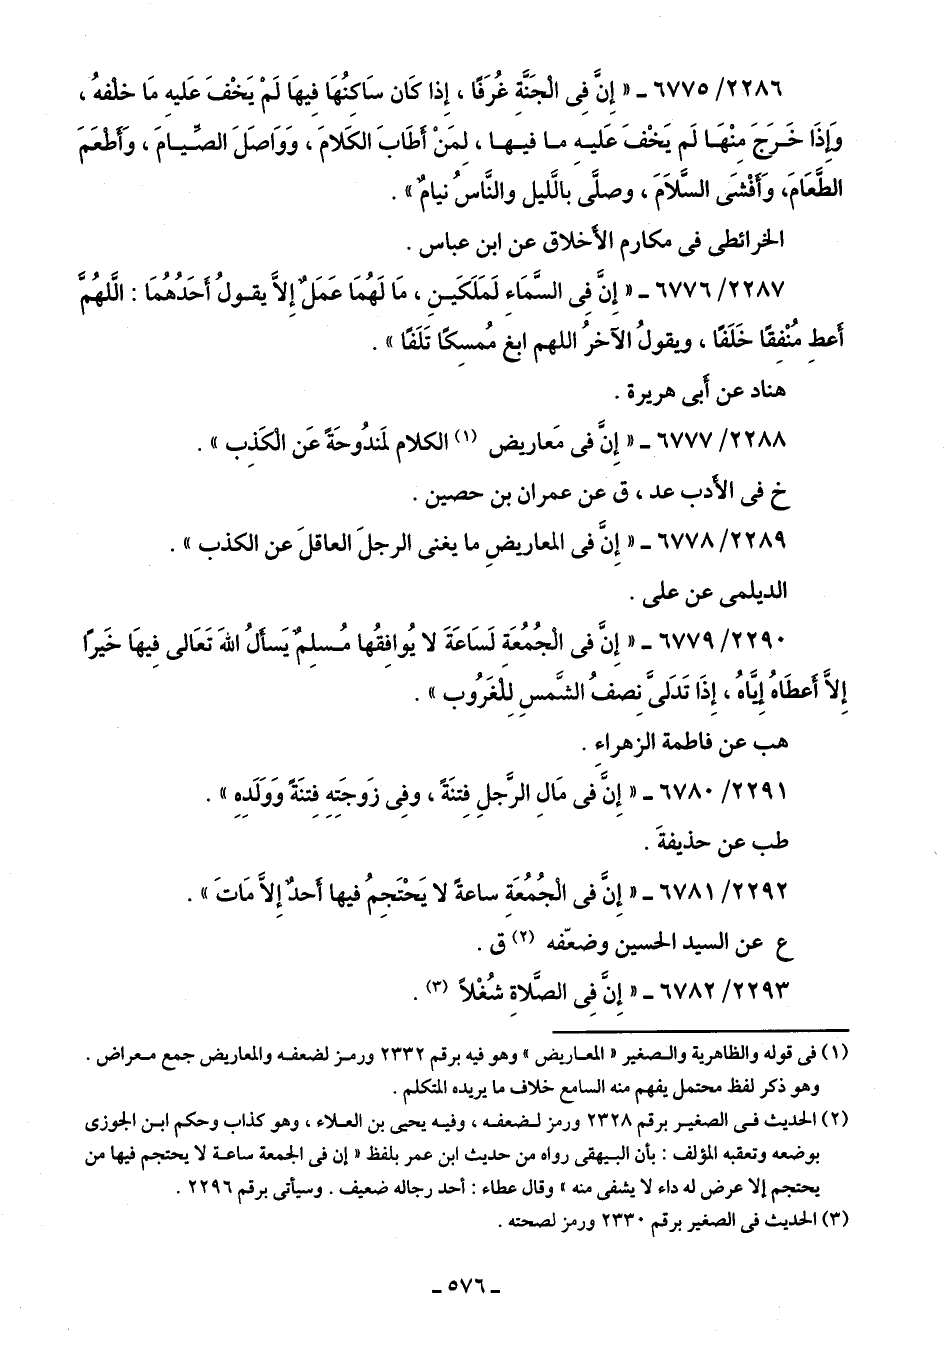 ٢٢٨٦/ ٦٧٧٥ ـ « إِنَّ فِى الْجَنَّةِ غُرَفًا ، إِذا كَان سَاكِنُهَا فِيهَا لَمْ يَخْفَ عَلَيهِ مَا خلْفهُ ،
وَإِذَا خَرَجَ مِنْهَا لَم يَخْفَ عَلَيهِ ما فِيها ، لِمَنْ أَطَابَ الكَلامَ ، وَوَاصَلَ الصِّيامَ ، وأَطْعَمَ
الطَّعَامَ، وَأَفْشَى السَّلاَمَ ، وصلَّى بالَّليلِ والنَّاسُ نيامٌ » .
الخرائطى فى مكارم الأخلاق عن ابن عباس .
٢٢٨٧/ ٦٧٧٦ ـ « إِنَّ فِى السَّمَاءِ لَمَلَكَينِ ، مَا لَهُمَا عَمَلٌ إِلاَّ يقولُ أَحَدُهُمَا : الَّلهُمَّ
أَعطِ مُنْفِقًا خَلَفًا ، ويقولُ الآخرُ اللهم ابغِ مُمسِكًا تَلَفًا » .
هناد عن أَبى هريرة .
٢٢٨٨/ ٦٧٧٧ ـ « إِنَّ فِى مَعاريضِ (١) الكلام لَمندُوحَةً عَنِ الْكَذِبِ » .
خ فى الأَدب عد ، ق عن عمران بن حصين .
٢٢٨٩/ ٦٧٧٨ ـ « إِنَّ فِى المعاريضِ ما يغنى الرجلَ العاقلَ عن الكذب » .
الديلمى عن على .
٢٢٩٠/ ٦٧٧٩ ـ « إِنَّ فِى الْجُمُعَةِ لَسَاعَةً لا يُوافِقُها مُسلِمٌ يَسأَلُ اللهَ تَعَالى فِيهَا خَيرًا
إِلاَّ أَعطَاهُ إِيَّاهُ ، إِذَا تَدَلىَّ نِصفُ الشَّمسِ لِلْغَرُوبِ » .
هب عن فاطمة الزهراءِ .
٢٢٩١/ ٦٧٨٠ ـ « إِنَّ فى مَالِ الرَّجلِ فِتنَةً ، وفِى زَوجَتِهِ فِتنَةً وَوَلَدِهِ » .
طب عن حذيفةَ .
٢٢٩٢/ ٦٧٨١ ـ « إِنَّ فى الْجُمُعَةِ ساعةً لا يَحْتَجِمُ فيها أَحدٌ إِلاَّ مَاتَ » .
ع عن السيد الحسين وضعّفه (٢) ق .
٢٢٩٣/ ٦٧٨٢ ـ « إِنَّ فِى الصَّلاةِ شُغْلاً (٣) .
(١) فى قوله والظاهرية والصغير « المعاريض » وهو فيه برقم ٢٣٣٢ ورمز لضعفه والمعاريض جمع معراض .
وهو ذكر لفظ محتمل يفهم منه السامع خلاف ما يريده المتكلم .
(٢) الحديث فى الصغير برقم ٢٣٢٨ ورمز لضعفه ، وفيه يحيى بن العلاء ، وهو كذاب وحكم ابن الجوزى
بوضعه وتعقبه المؤلف : بأن البيهقى رواه من حديث ابن عمر بلفظ « إن فى الجمعة ساعة لا يحتجم فيها من
يحتجم إلا عرض له داء لا يشفى منه » وقال عطاء : أحد رجاله ضعيف . وسيأتى برقم ٢٢٩٦ .
(٣) الحديث فى الصغير برقم ٢٣٣٠ ورمز لصحته .
ـ ٥٧٦ ـ